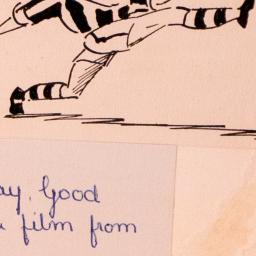 ay, Good
film from